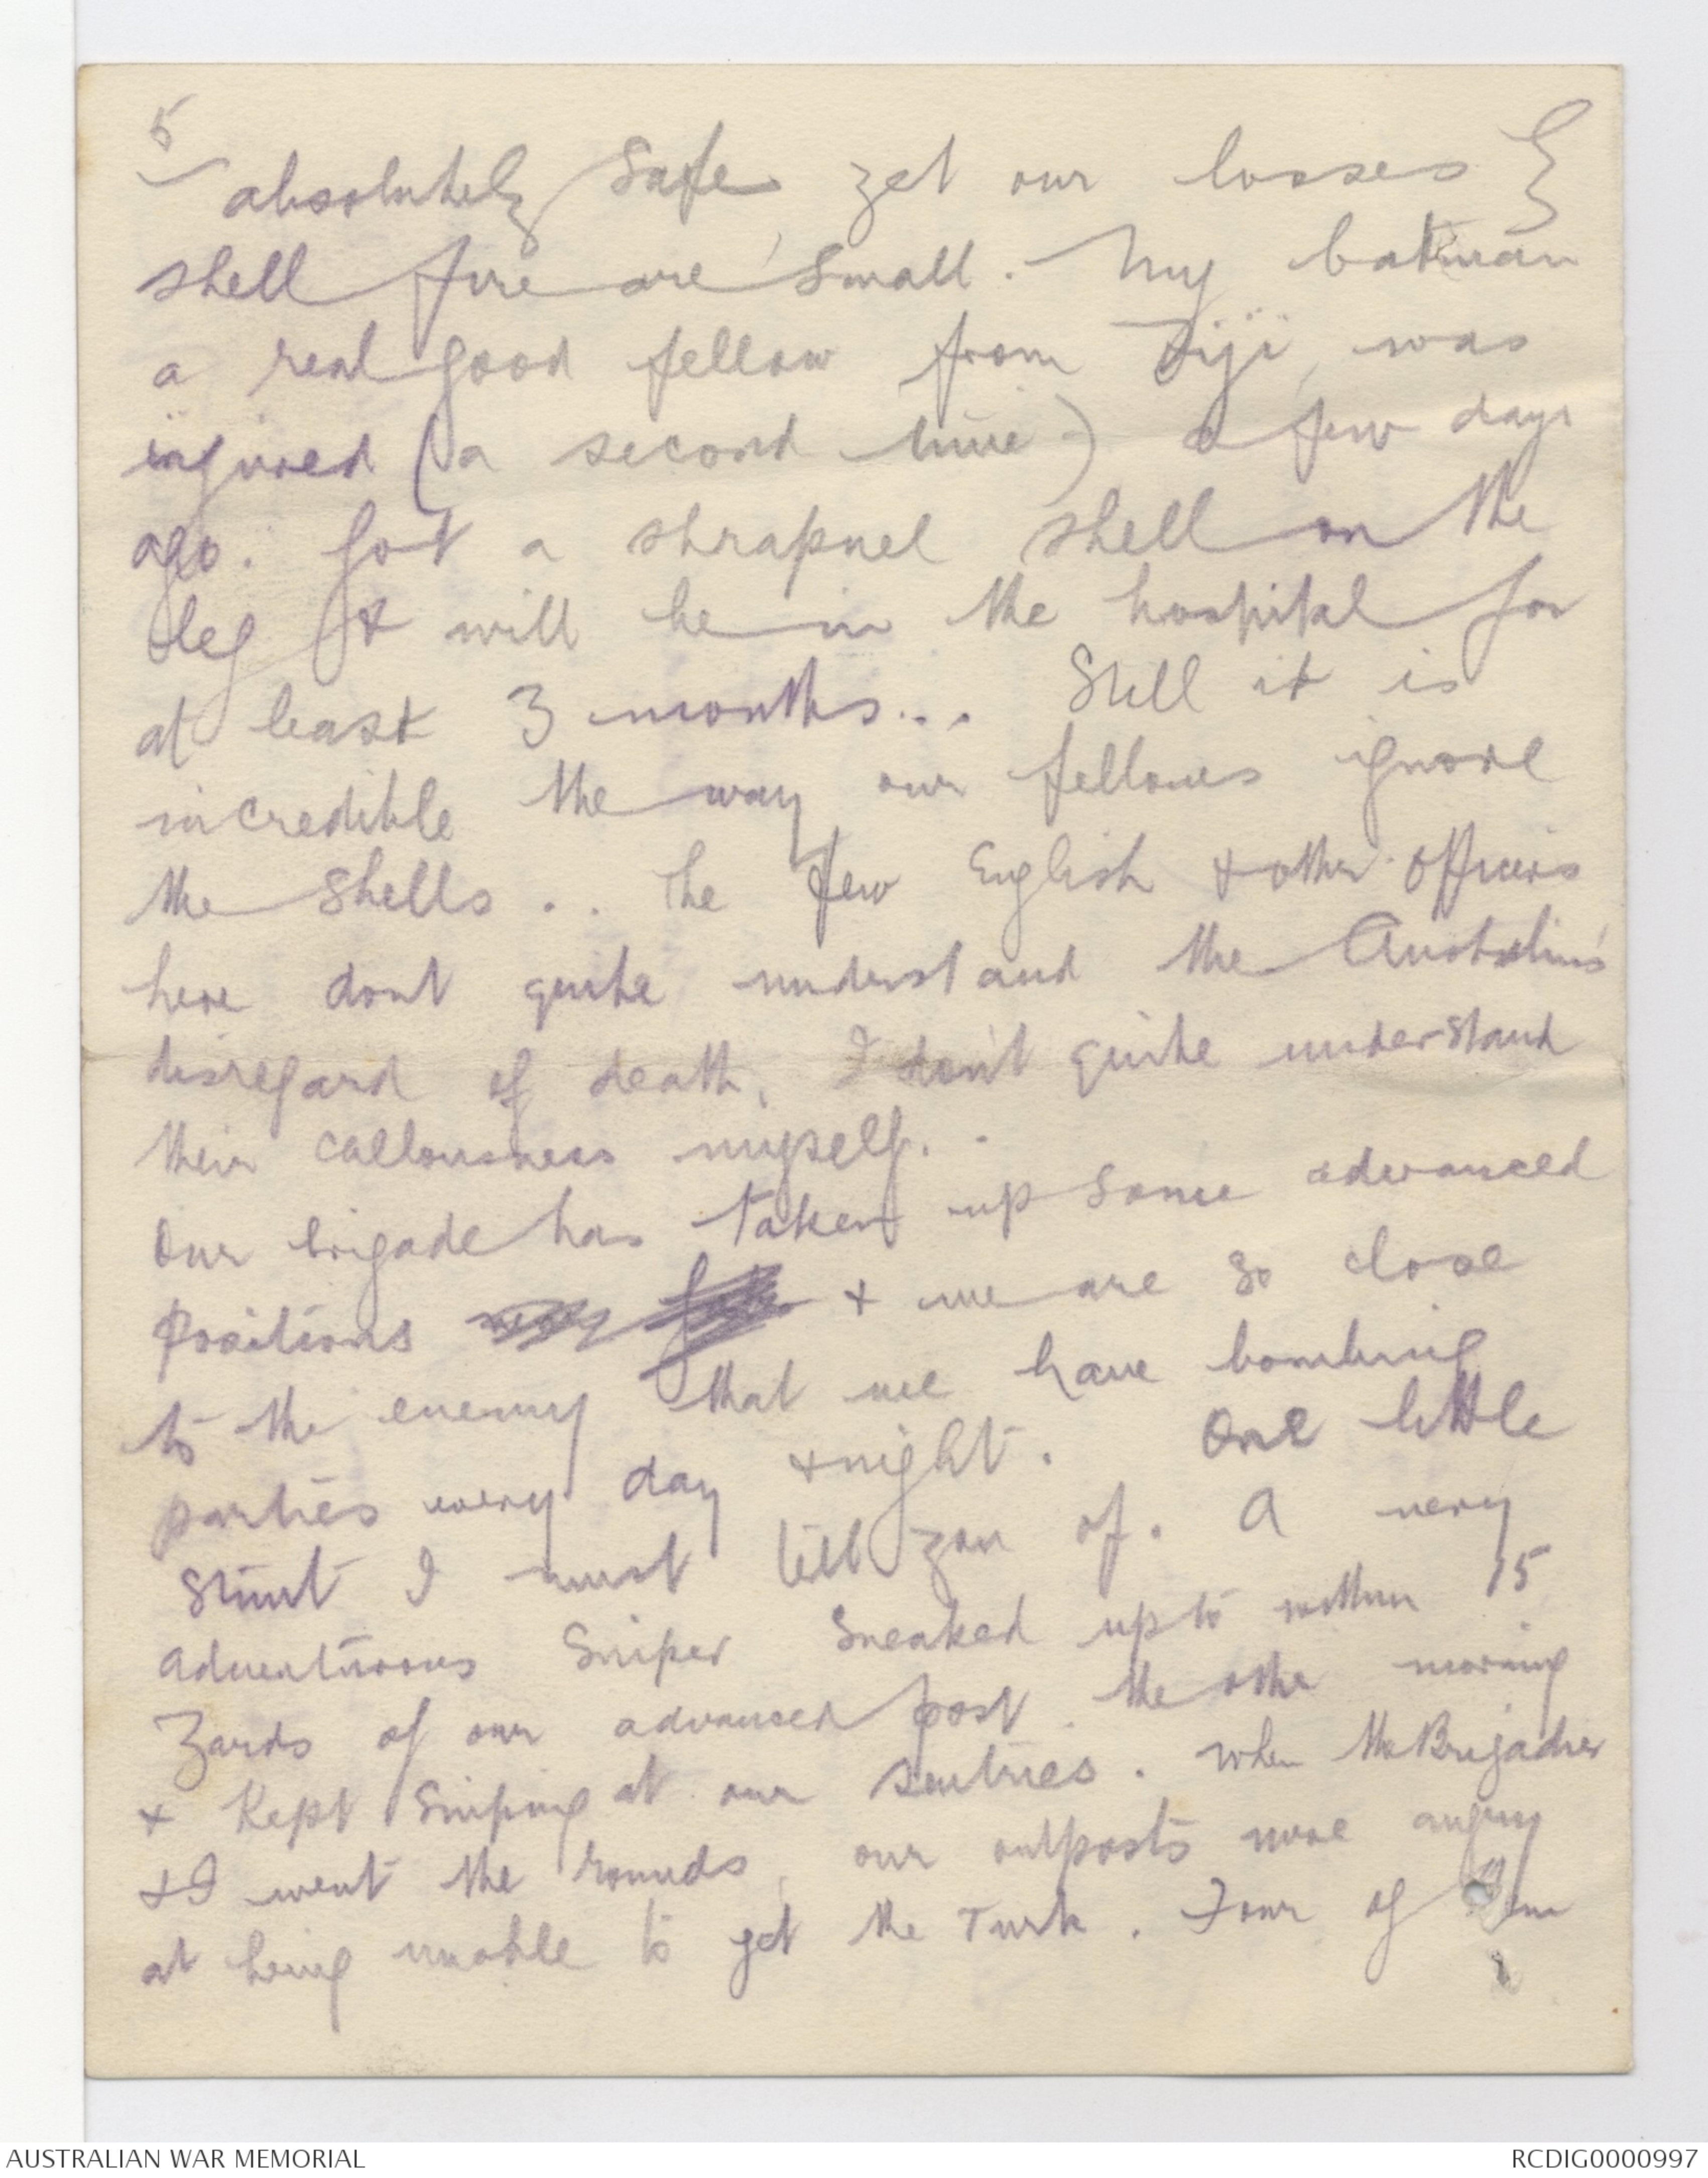 5
absolutely safe, yet our losses
shell fire are small. My batman
a real good fellow from Fiji, was
injured (a second time) a few days
ago. Got a shrapnel shell on the
leg & will be in the hospital for
at least 3 months... Still it is
incredible the way our fellows ignore
the shells.. The few English & other officers
here dont quite understand the
disregard of death. I don't quite understand
their callousness myself..
Our brigade has taken up some advanced
positions & we are so close
to the enemy that we have bombing
parties every day & night. One little
stunt I must tell you of. A very
adventurous sniper sneaked up to within 15
yards of our advanced post the other morning
& kept sniping at our sentries. When the Brigadier
& I went the rounds, our outposts were angry
at being unable to get the Turk. Four of them
AUSTRALIAN WAR MEMORIAL
RCDIG0000997